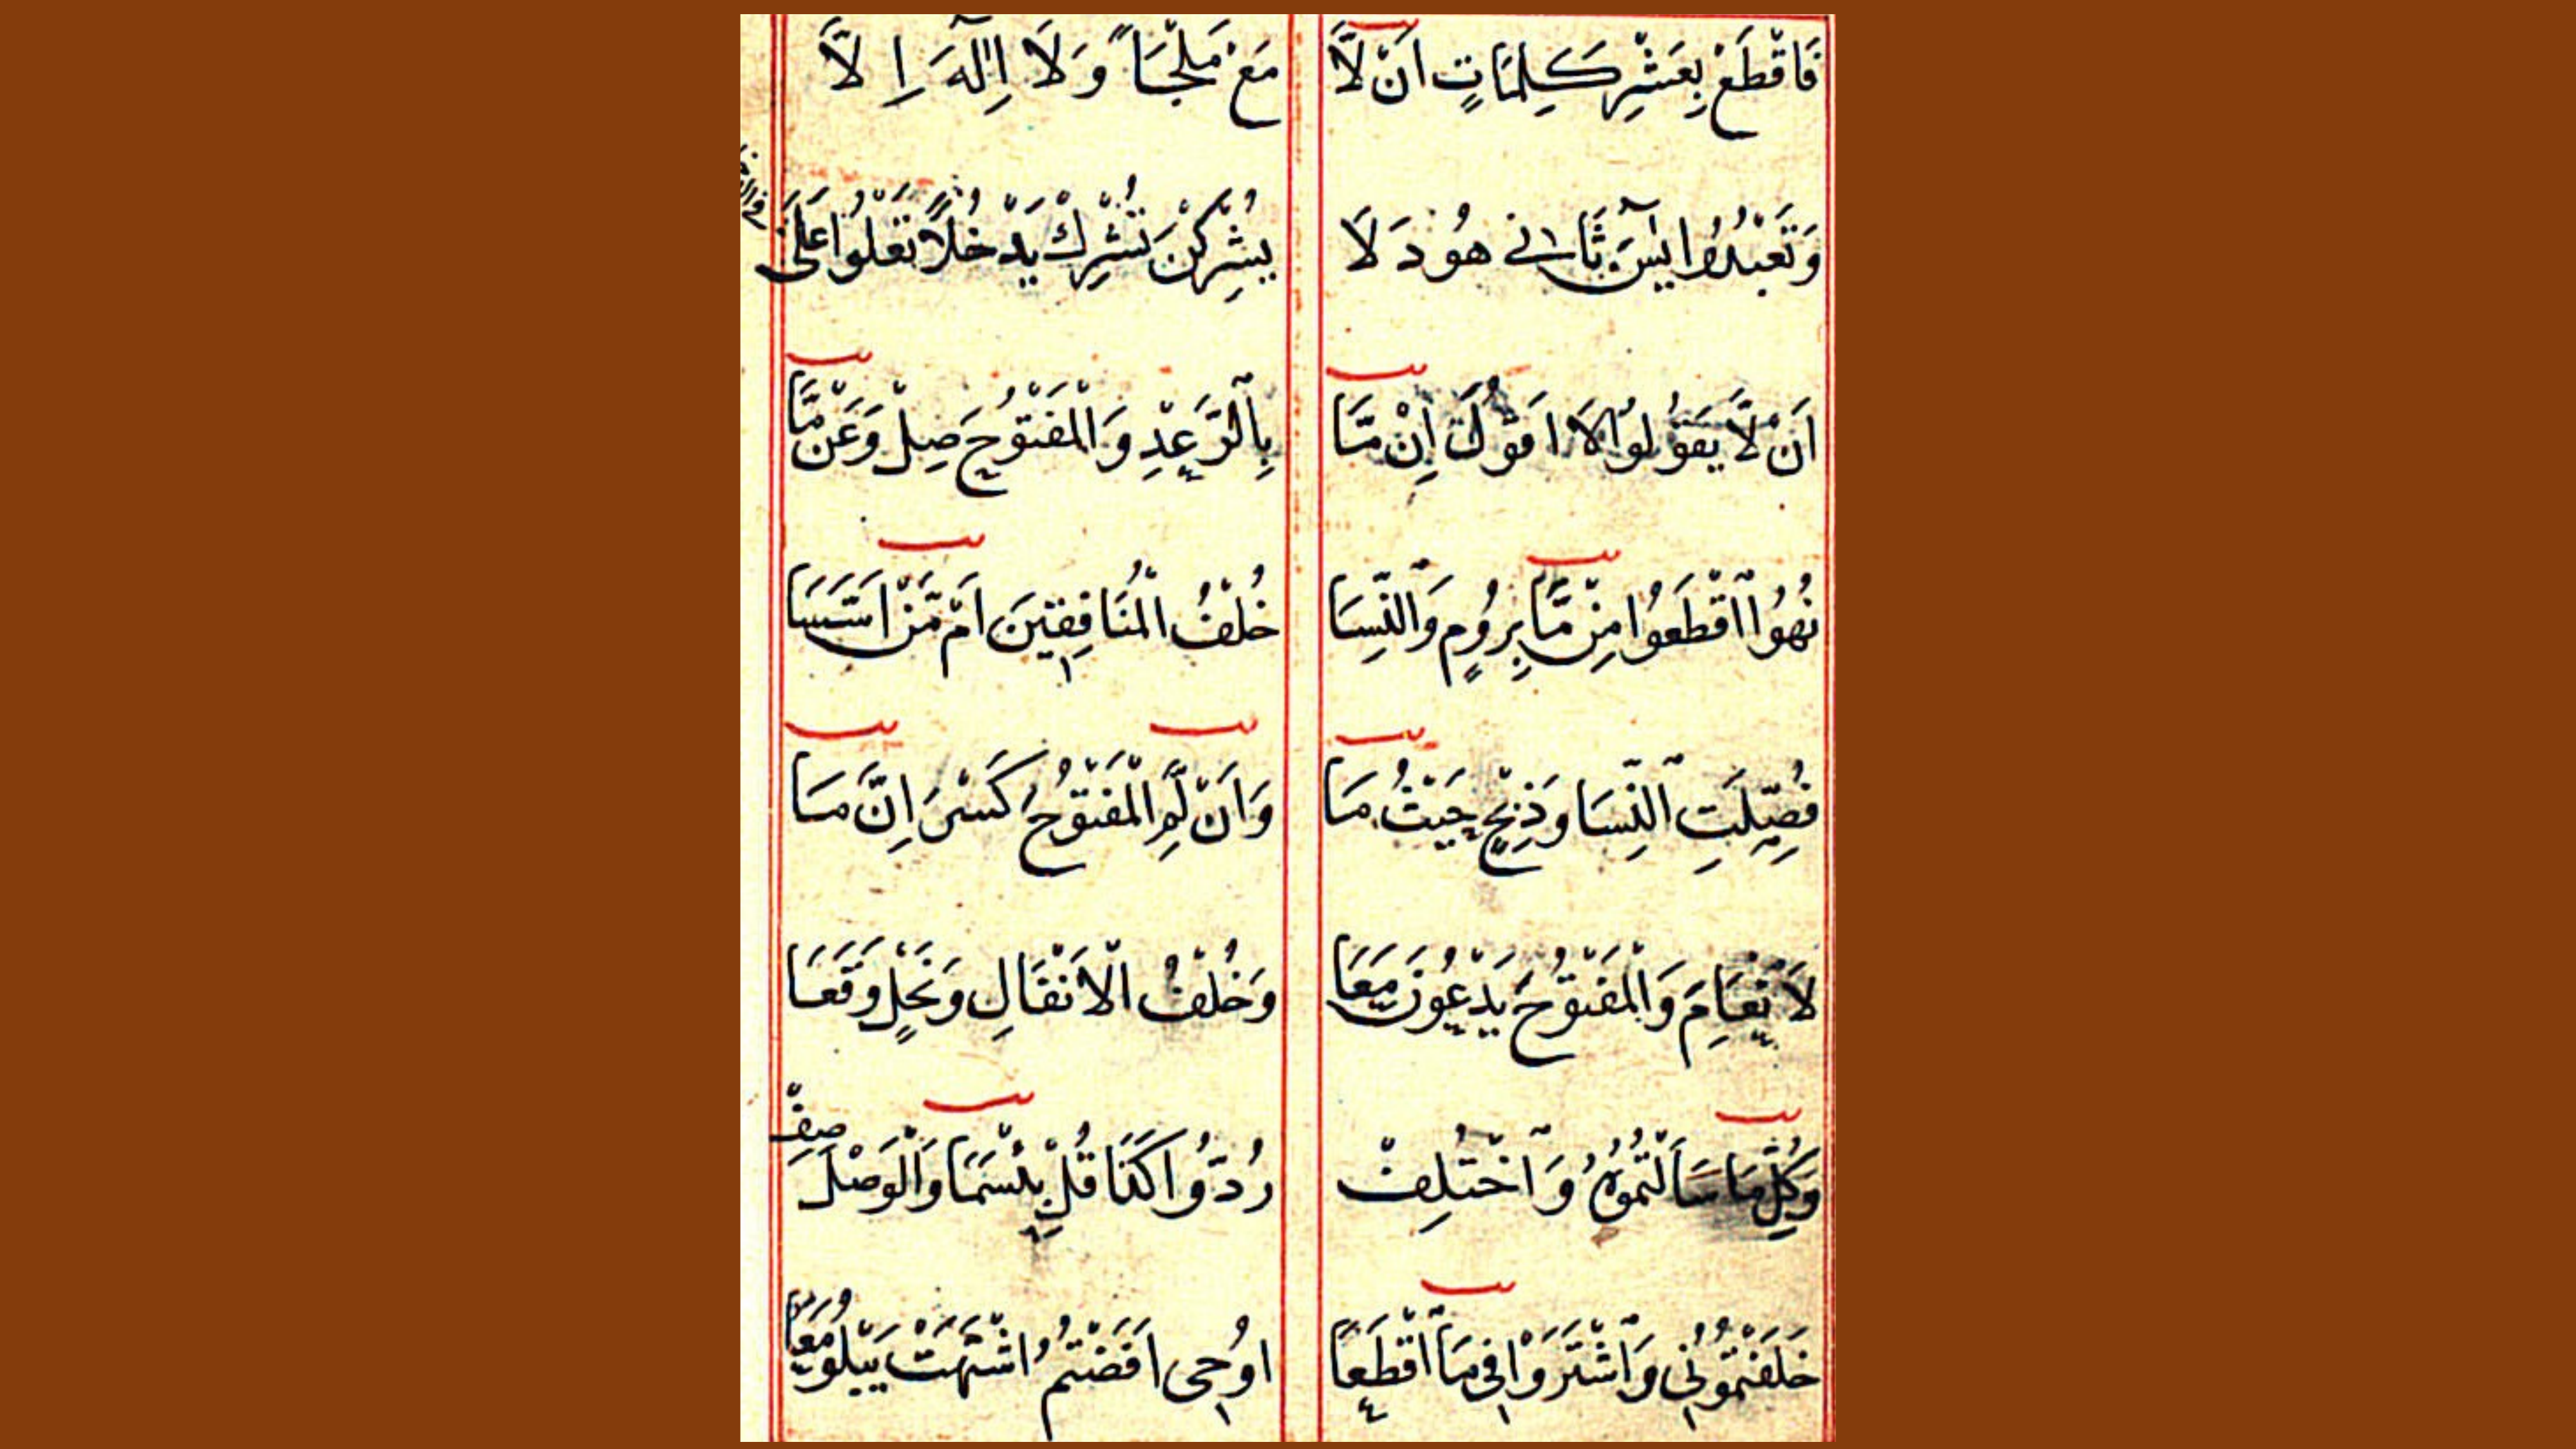 فَاقْطَعْ بِعَشْرِ كَلِمَاتٍ اَنْ لَّا مَعْ مَلْجَاً وَلَا اِلٰهَ اِلَّا
وَتَعْبُدُوا يٰسٓ ثَانِي هُودَ لَا يُشْرِكْنَ تُشْرِكْ يَدْخُلًا تَعْلُوا عَلَى
اَنْ لَّا يَقُولُوا لَا اَقُولَ اِنْ مَّا بِالرَّعْدِ وَالْمَفْتُوحَ صِلْ وَعَنْ مَّا
نُهُوا اقْطَعُوا مِنْ مَّا بِرُومٍ وَالنِّسَا خُلْفُ الْمُنَافِقِينَ اَمْ مَّنْ اَسَّسَا
فُصِّلَتِ النِّسَا وَذِبْحٍ حَيْثُ مَا وَاَنْ لَّمِ الْمَفْتُوحُ كَسْرَ اِنَّ مَا
لَانْعَامِ وَالْمَفْتُوحَ يَدْعُونَ مَعَا وَخُلْفُ الْاَنْفَالِ وَنَحْلٍ وَقَعَا
وَكُلِّ مَا سَاَلْتُمُوهُ وَاخْتُلِفْ رُدُّوا كَذَا قُلْ بِئْسَمَا وَالْوَصْلَ صِفْ
خَلَفْتُمُونِي وَاشْتَرَوْا فِي مَا اقْطَعَا اُوحِي اَفَضْتُمُ اشْتَهَتْ يَبْلُو مَعَا